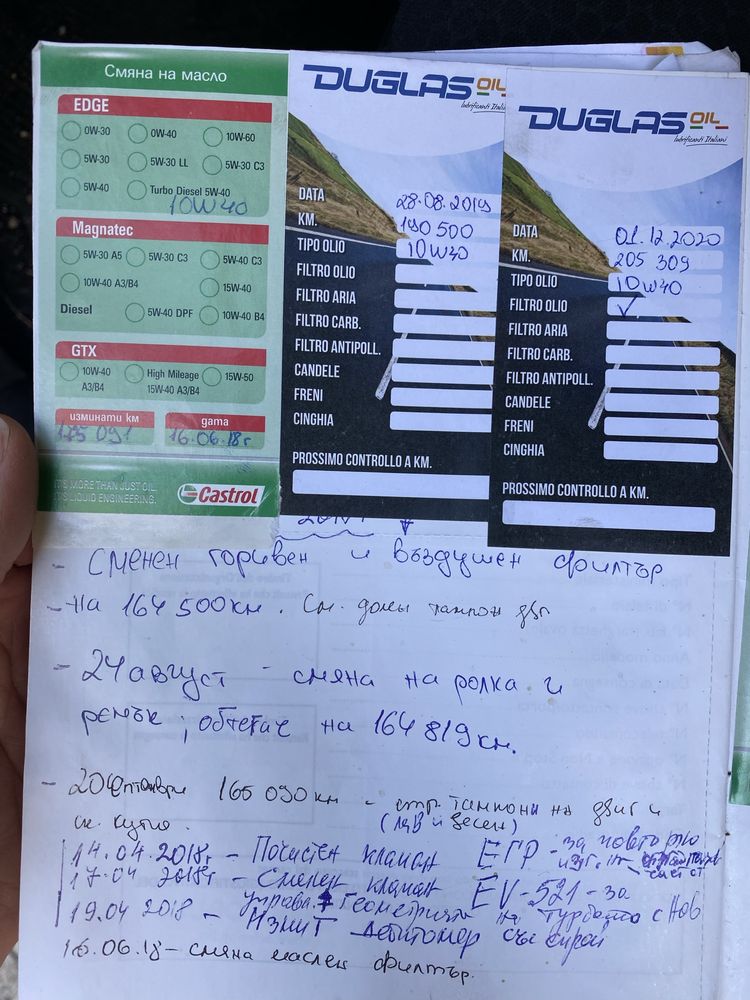 Смяна на масло
EDGE
0W-30 0W-40 10W-60
5W-30 5W-30 LL 5W-30 C3
5W-40 Turbo Diesel 5W-40
10W40
Magnatec
5W-30 A5 5W-30 C3 5W-40 C3
10W-40 A3/B4 15W-40
Diesel 5W-40 DPF 10W-40 B4
GTX
10W-40 A3/B4 High Mileage 15W-40 A3/B4 15W-50
изминати км дата
175 091 16.06.18г
IT'S MORE THAN JUST OIL.
IT'S LIQUID ENGINEERING.
Castrol
DUGLAS OIL
lubrificanti Italiani
DATA 28.08.2019
KM. 190 500
TIPO OLIO 10W40
FILTRO OLIO
FILTRO ARIA
FILTRO CARB.
FILTRO ANTIPOLL.
CANDELE
FRENI
CINGHIA
PROSSIMO CONTROLLO A KM.
DUGLAS OIL
lubrificanti Italiani
DATA 01.12.2020
KM. 205 309
TIPO OLIO 10W40
FILTRO OLIO ✓
FILTRO ARIA
FILTRO CARB.
FILTRO ANTIPOLL.
CANDELE
FRENI
CINGHIA
PROSSIMO CONTROLLO A KM.
- Сменен горивен и въздушен филтър
- На 164 500км. См. долен тампон двг
- 24 август - смяна на ролка и
ремък, обтегач на 164 819км.
- 20 септември 165 090 км - стр. тампони на двиг и
ск. кутия. (ляв и десен)
14.04.2018г - Почистен клапан ЕГР - за повторно
17.04 2018г - Сменен клапан EV-521 - за
управл. геометрията на турбото с нов
19.04 2018 - Измит дебитомер със спрей
16.06.18 - смяна маслен филтър.